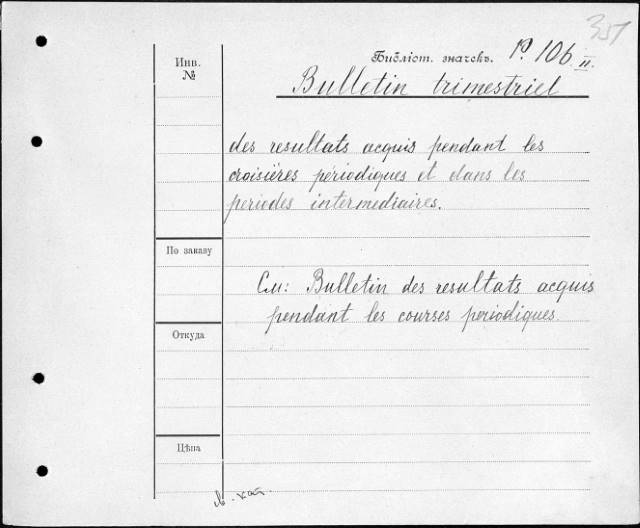 351
Инв. №
Библіот. значекъ. P 106 II.
Bulletin trimestriel
des resultats acquis pendant les
croisières périodiques et dans les
periodes intermediaires.
По заказу
См: Bulletin des resultats acquis
pendant les courses periodiques.
Откуда
Цѣна
кат.